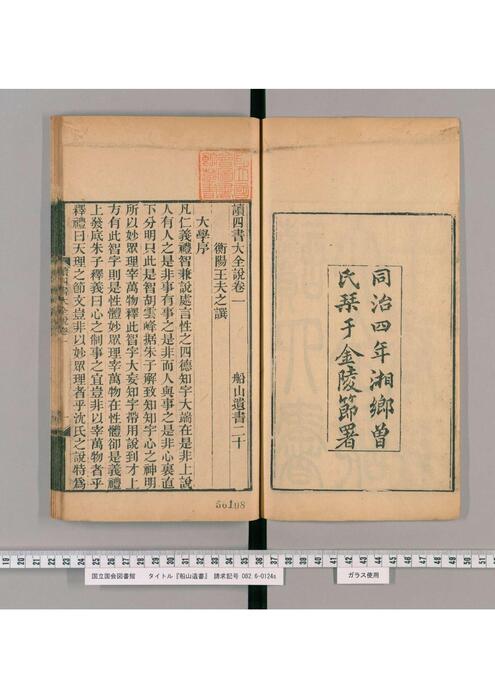 同治四年湘鄉曾
氏栞于金陵節署
讀四書大全說卷一　船山遺書二十
衡陽王夫之譔
大學序
凡仁義禮智兼說處言性之四德知字大端在是非上說
人有人之是非事有事之是非而人與事之是非心裏直
下分明只此是智胡雲峰據朱子解致知知字心之神明
所以妙眾理宰萬物釋此智字大妄知字帶用說到才上
方有此智字則是性體妙眾理宰萬物在性體卻是義禮
上發底朱子釋義曰心之制事之宜豈非以宰萬物者乎
釋禮曰天理之節文豈非以妙眾理者乎沈氏之說特爲
56108
19 20 21 22 23 24 25 26 27 28 29 30 31 32 33 34 35 36 37 38 39 40 41 42 43 44 45 46 47 48 49 50 51
国立国会図書館　タイトル『船山遺書』　請求記号 082.6-0124s
ガラス使用